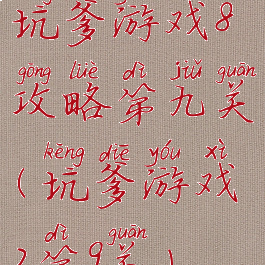 坑爹游戏8
gōng lüè dì jiǔ guān
攻略第九关
kēng diē yóu xì
(坑爹游戏
dì guān
第9关)